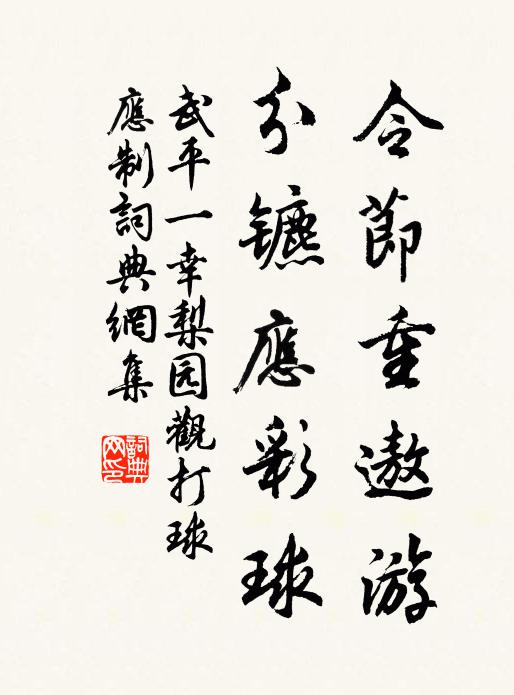 令節重遨游
分鑣應彩球
武平一幸梨园觀打球
應制詞典網集
詞典网印